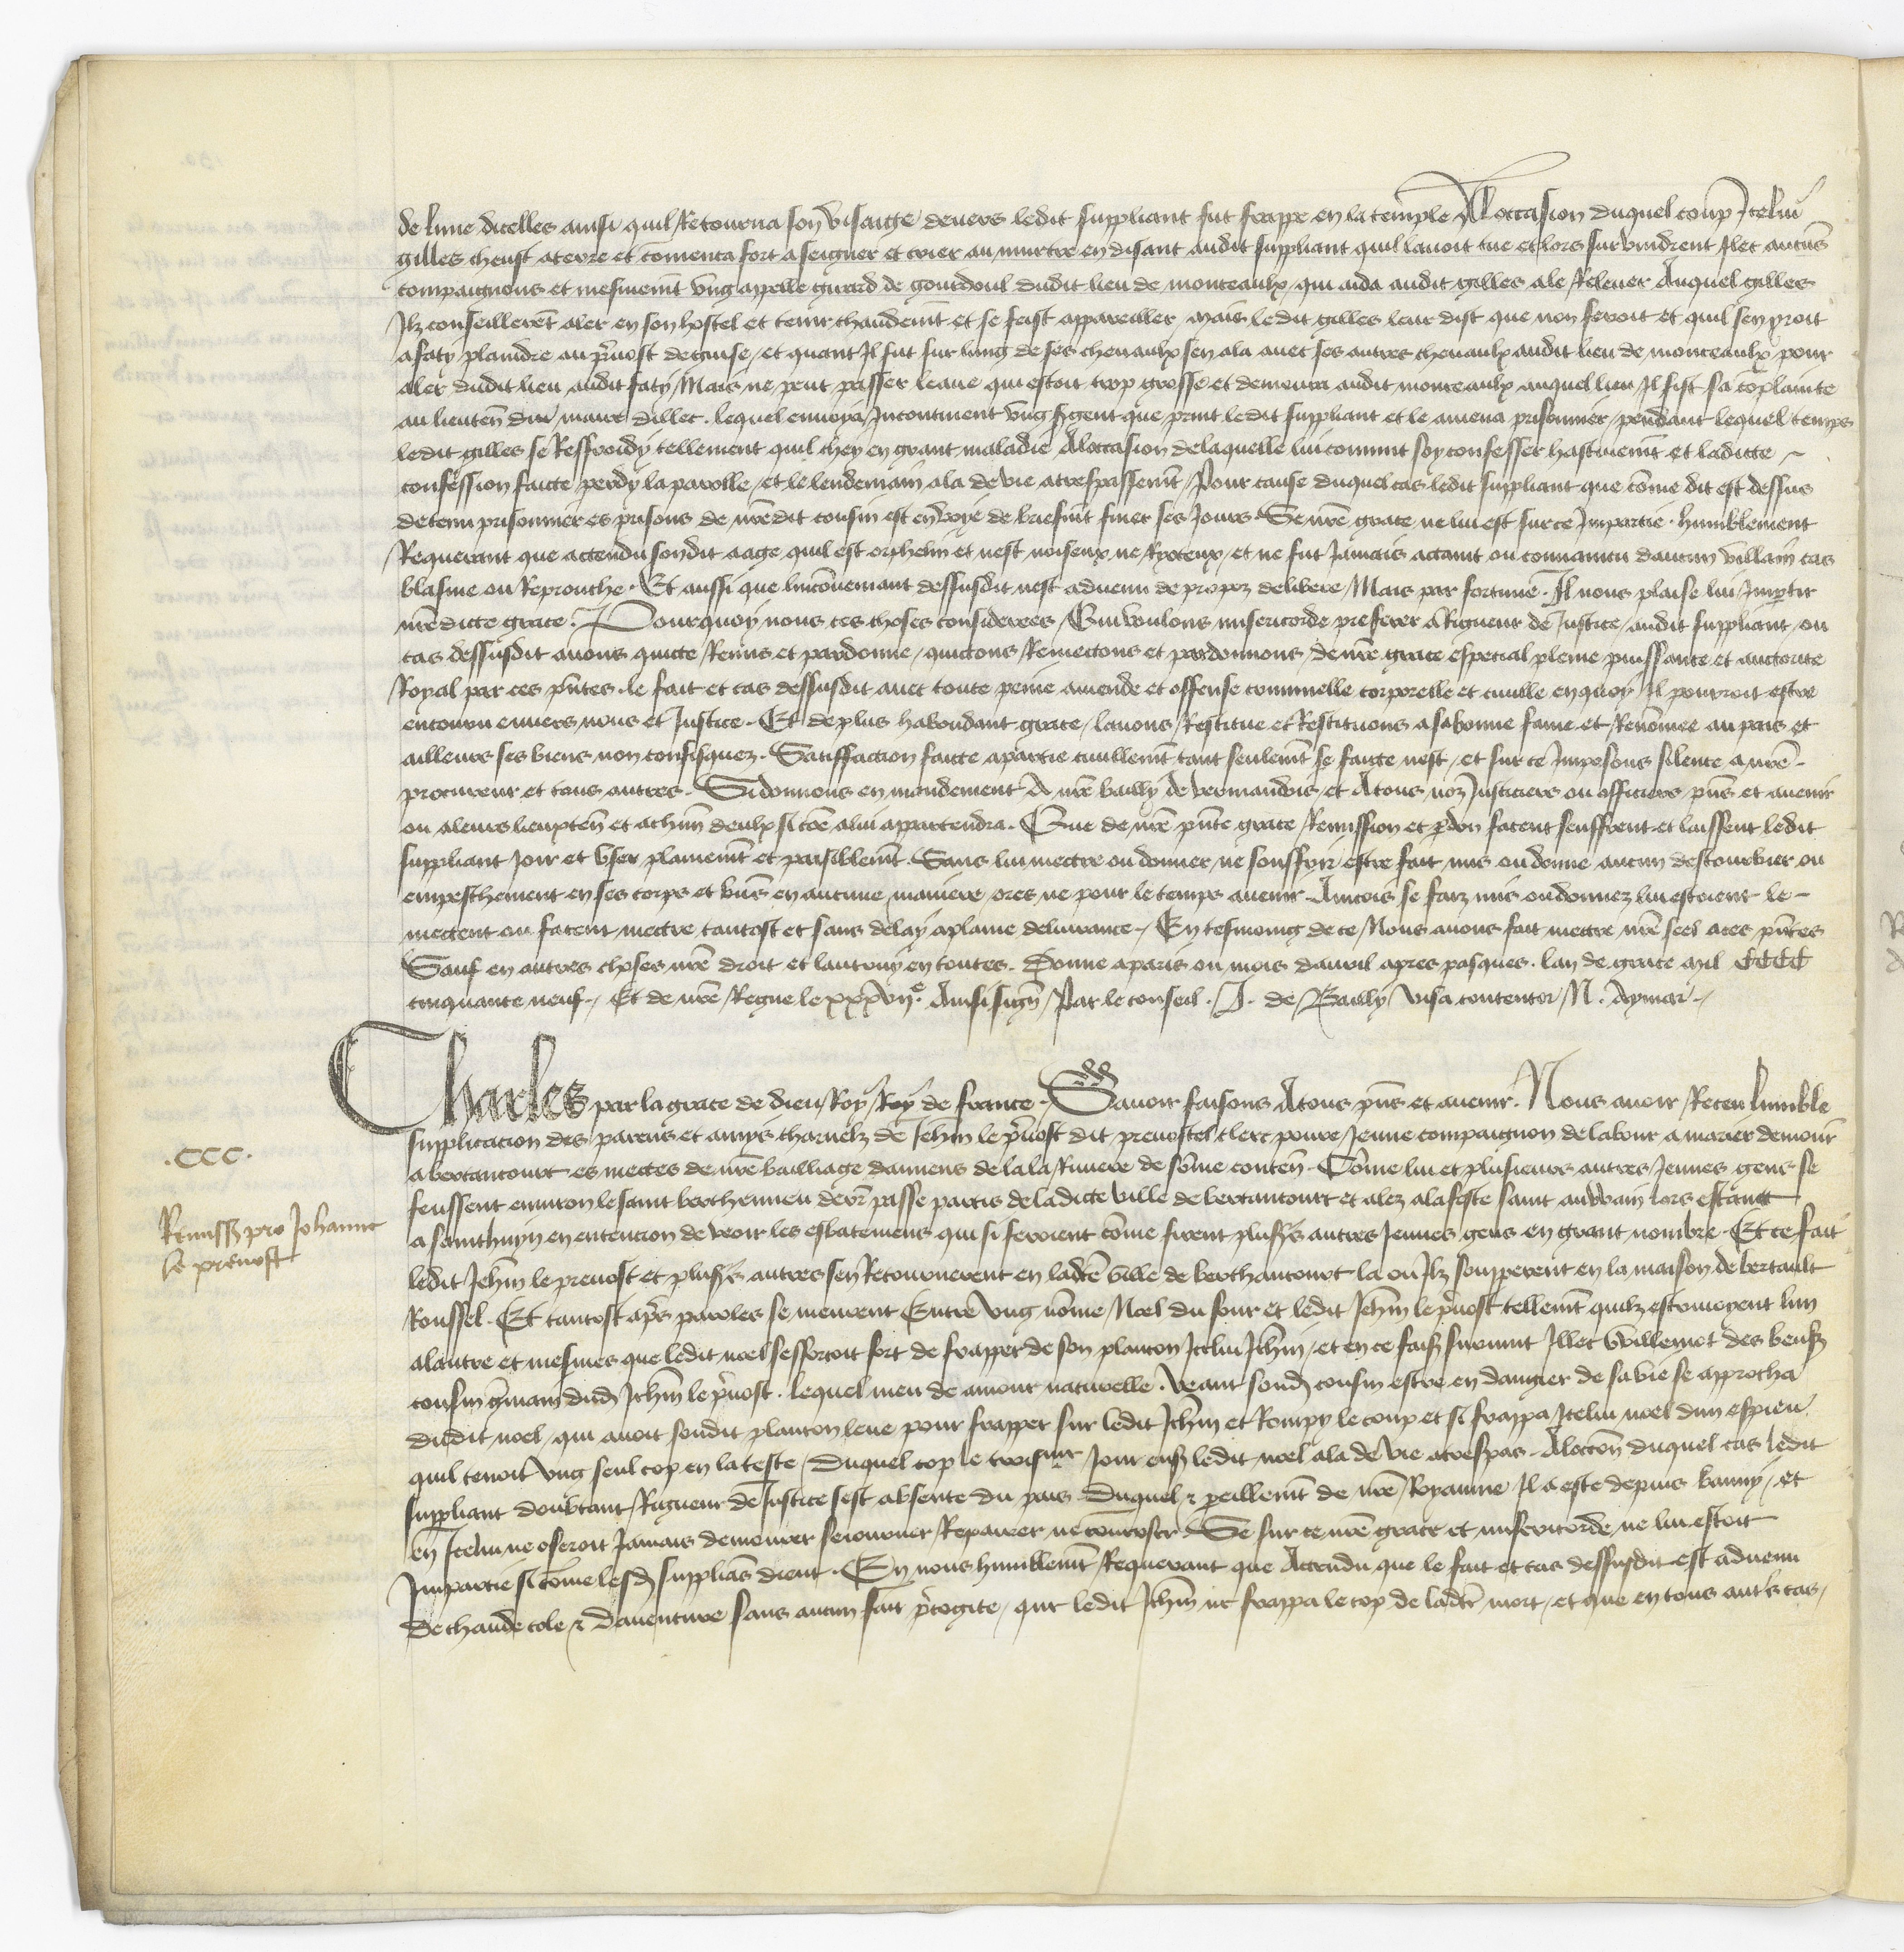 de lune dicelles ainsi quil Retourna son visaige devers ledit suppliant fut frappe en la temple Aloccasion duquel coup Icelui
gilles cheust a terre et commenca fort a seigner et crier au murtre en disant audit suppliant quil lavoit tue et lors survindrent Ilec aucuns
compaignons et mesmement ung appelle girard de gondoul dudit lieu de monceaulx qui aida audit gilles a le Relever Auquel gilles
Ilz conseillerent aler en son hostel et tenir chaudement et se feist appareiller mais ledit gilles leur dist que non feroit et quil sen yroit
a faty plaindre au prevost de guise et quant Il fut sur lung de ses chevaulx sen ala avec ses autres chevaulx audit lieu de monceaulx pour
aler dudit lieu audit faty Mais ne peut passer leaue qui estoit trop grosse et demoura audit monceaulx auquel lieu Il fist sa complainte
au lieuten du maire dillec . lequel envoya Incontinent ung sergent que print ledit suppliant et le amena prisonnier pendant lequel temps
ledit gilles se Reffroidy tellement quil chey en grant maladie Aloccasion de laquelle lui convint soy confesser hastivement et ladicte
confession faicte perdy la parolle et le lendemain ala de vie a trespassement Pour cause duquel cas ledit suppliant que comme dit est dessus
detenu prisonnier es prisons de nredit cousin est en voye de briefment finer ses Jours Se nre grace ne lui est sur ce Impartie . humblement
Requerant que actendu sondit aage quil est orphelin et nest noiseux ne Ryoteux et ne fut Jamais actaint ou convaincu daucun villain cas
blasme ou Reprouche . Et aussi que linconveniant dessusdit nest advenu de propoz delibere Mais par fortune . Il nous plaise lui Impartir
nredicte grace . Pourquoy nous ces choses considerees Qui voulons misericorde preferer a Rigueur de Justice audit suppliant ou
cas dessusdit avons quicte Remis et pardonne quictons Remectons et pardonnons de nre grace especial pleine puissance et auctorite
Royal par ces pntes le fait et cas dessusdit avec toute peine amende et offense criminelle corporelle et civille en quoy Il pourroit estre
encouru envers nous et Justice . Et de plus habondant grace lavons Restitue et Restituons a sa bonne fame et Renommee au pais et
ailleurs ses biens non confisquez . Satisfaction faicte a partie civillement tant seulement se faicte nest et sur ce Imposons silence a nre
procureur et tous autres . Si donnons en mandement A nre bailly de vermandois et A tous noz Justiciers ou officiers pns et avenir
ou a leurs lieuxten et a chun deulx si coe a lui appartendra . Que de nre pnte grace Remission et pdon facent seuffrent et laissent ledit
suppliant Joir et user plainement et paisiblement Sans lui mectre ou donner ne souffrir estre fait mis ou donne aucun destourbier ou
empeschement en ses corps et biens en aucune maniere ores ne pour le temps avenir Aincois se faiz mis ou donnez lui estoient le
mectent ou facent mectre tantost et sans delay a plaine delivrance . En tesmoing de ce Nous avons fait mectre nre seel a ces pntes
Sauf en autres choses nre droit et lautruy en toutes . Donne a paris ou mois davril apres pasques . lan de grace mil CCCC
cinquante neuf . Et de nre Regne le xxxvije . Ainsi signe Par le conseil . J . de Bailly Visa contentor N . Aymar
Charles par la grace de dieu Roy Roy de france . Savoir faisons A tous pns et avenir . Nous avoir Receu lumble
supplicacion des parens et amys charnelz de Jehan le prevost dit prevostel clerc povre Jenne compaignon de labour a marier demour
a bertancourt es mectes de nre bailliage damiens de la la Riviere de some conten . Come lui et plusieurs autres Jennes gens se
feussent environ le saint berthemieu derr passe partis de ladicte ville de bertancourt et alez a la feste saint auvrain lors estant
a sainthuyn en entencion de veoir les esbatemens qui si feroient come firent plusrs autres Jennes gens en grant nombre . Et ce fait
ledit Jehan le prevost et plusrs autres sen Retournerent en ladte ville de berthancourt la ou Ilz soupperent en la maison de bertault
Roussel . Et tantost apres paroles se meurent Entre ung nomme Noel du four et ledit Jehan le prevost tellement quilz estrivoyent lun
a lautre et mesmes que ledit noel sefforcoit fort de frapper de son planton Icelui Jehan et en ce fais survint Illec Willemot des beufs
cousin germain dud Jehan le prevost . lequel meu de amour naturelle . veant sond cousin estre en dangier de sa vie se approcha
dudit noel qui avoit sondit planton leve pour frapper sur ledit Jehan et Rompy le coup et si frappa Icelui noel dun espieu
quil tenoit ung seul cop en la teste Duquel cop le troisme Jour ens ledit noel ala de vie a trespas . Aloccon duquel cas ledit
suppliant doubtant Rigueur de Justice sest absente du pais Duquel & peillement de nre Royaume Il a este depuis banny . et
en Icelui ne oseroit Jamais demourer seiourner Repairer ne converser . Se sur ce nre grace et misericorde ne lui estoit
Impartie si come lesd supplians dient . En nous humblement Requerant que Actendu que le fait et cas dessusdit est advenu
De chaude cole & Daventure sans aucun fait precogite que ledit Jehan ne frappa le cop de ladte mort et que en tous autrs cas
.CCC.
Remiss pro Johanne
le prevost